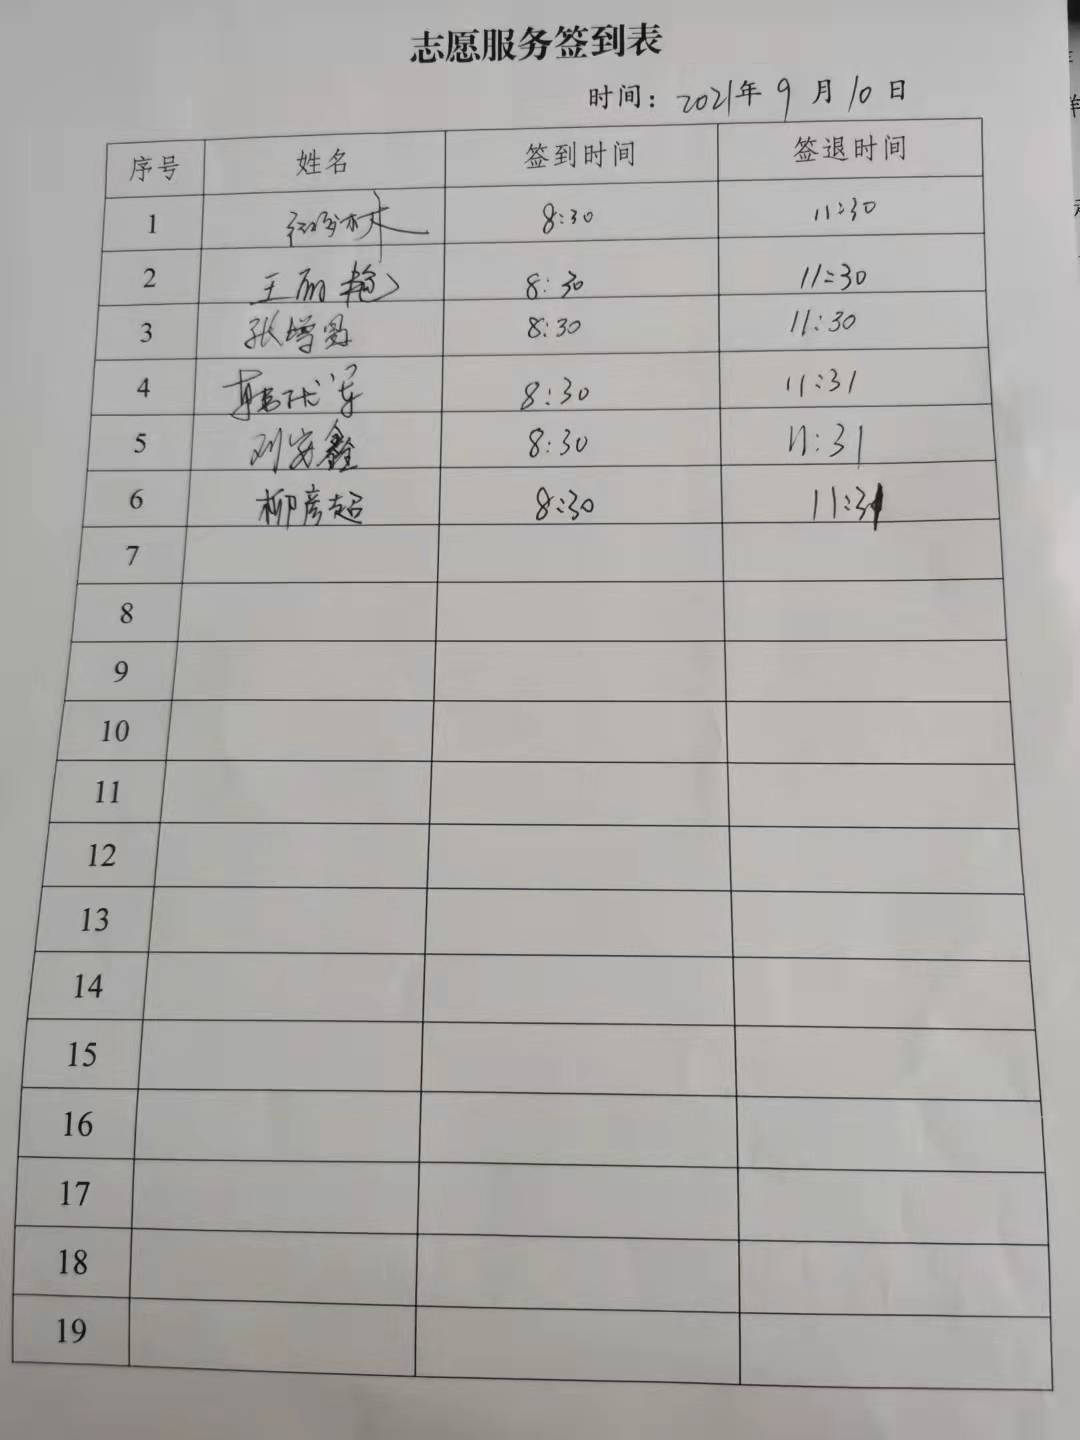 志愿服务签到表
时间：2021年 9 月 10 日
序号 姓名 签到时间 签退时间
1 8:30 11:30
2 王丽艳 8:30 11:30
3 张增勇 8:30 11:30
4 8:30 11:31
5 刘安鑫 8:30 11:31
6 柳彦超 8:30 11:31
7
8
9
10
11
12
13
14
15
16
17
18
19